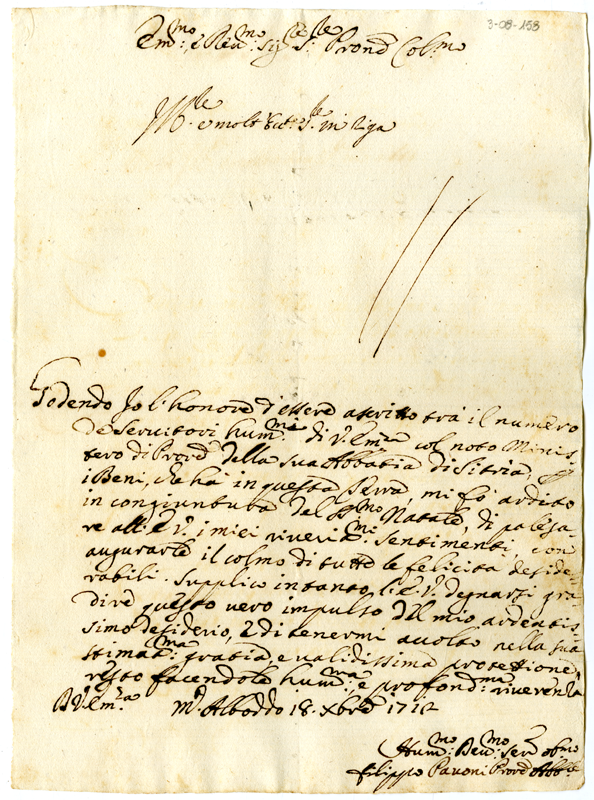 3-08-158
Em:mo e Rev:mo Sig:re S:r Pron Col:mo
Ill:re e molt in riga
Godendo Jo l'honore d'essere ascritto tra il numero
de Servitori hum:mi di V:a Em:za col noto Minis=
tero di Prov:re della sua Abbatia di Sitria, p
i Beni, che ha in questa Serra, mi fò ardito
in congiuntura del SS:mo Natale, di palesa=
re all'E V:a i miei riverit:mi Sentimenti, con
augurarle il colmo di tutte le felicità deside=
rabili. Supplico intanto l'E V:a degnarsi gra=
dire questo vero impulso del mio ardentis=
simo desiderio, e di tenermi accolto nella sua
stimat:ma gratia, e validissima protettione,
resto facendole hum:ma e profond:ma riverenza
D V: Em:za M: Alboddo 18. Xbre 1712
Hum:mo Dev:mo Ser: obl:mo
Filippo Pavoni Prov:re Abb:le